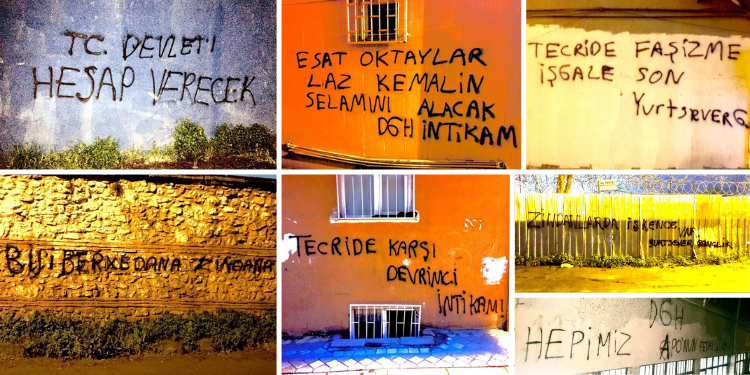 TC. DEVLETİ
HESAP VERECEK
ESAT OKTAYLAR
LAZ KEMALİN
SELAMINI ALACAK
DGH İNTİKAM
TECRİDE FAŞİZME
İŞGALE SON
YURTSEVER G
BIJI BERXEDANA ZINDANA
TECRİDE KARŞI
DEVRİMCİ
İNTİKAM!
ZİNDANLARDA İŞKENCE VAR
YURTSEVER GENÇLİK
DGH
HEPİMİZ APO'NUN